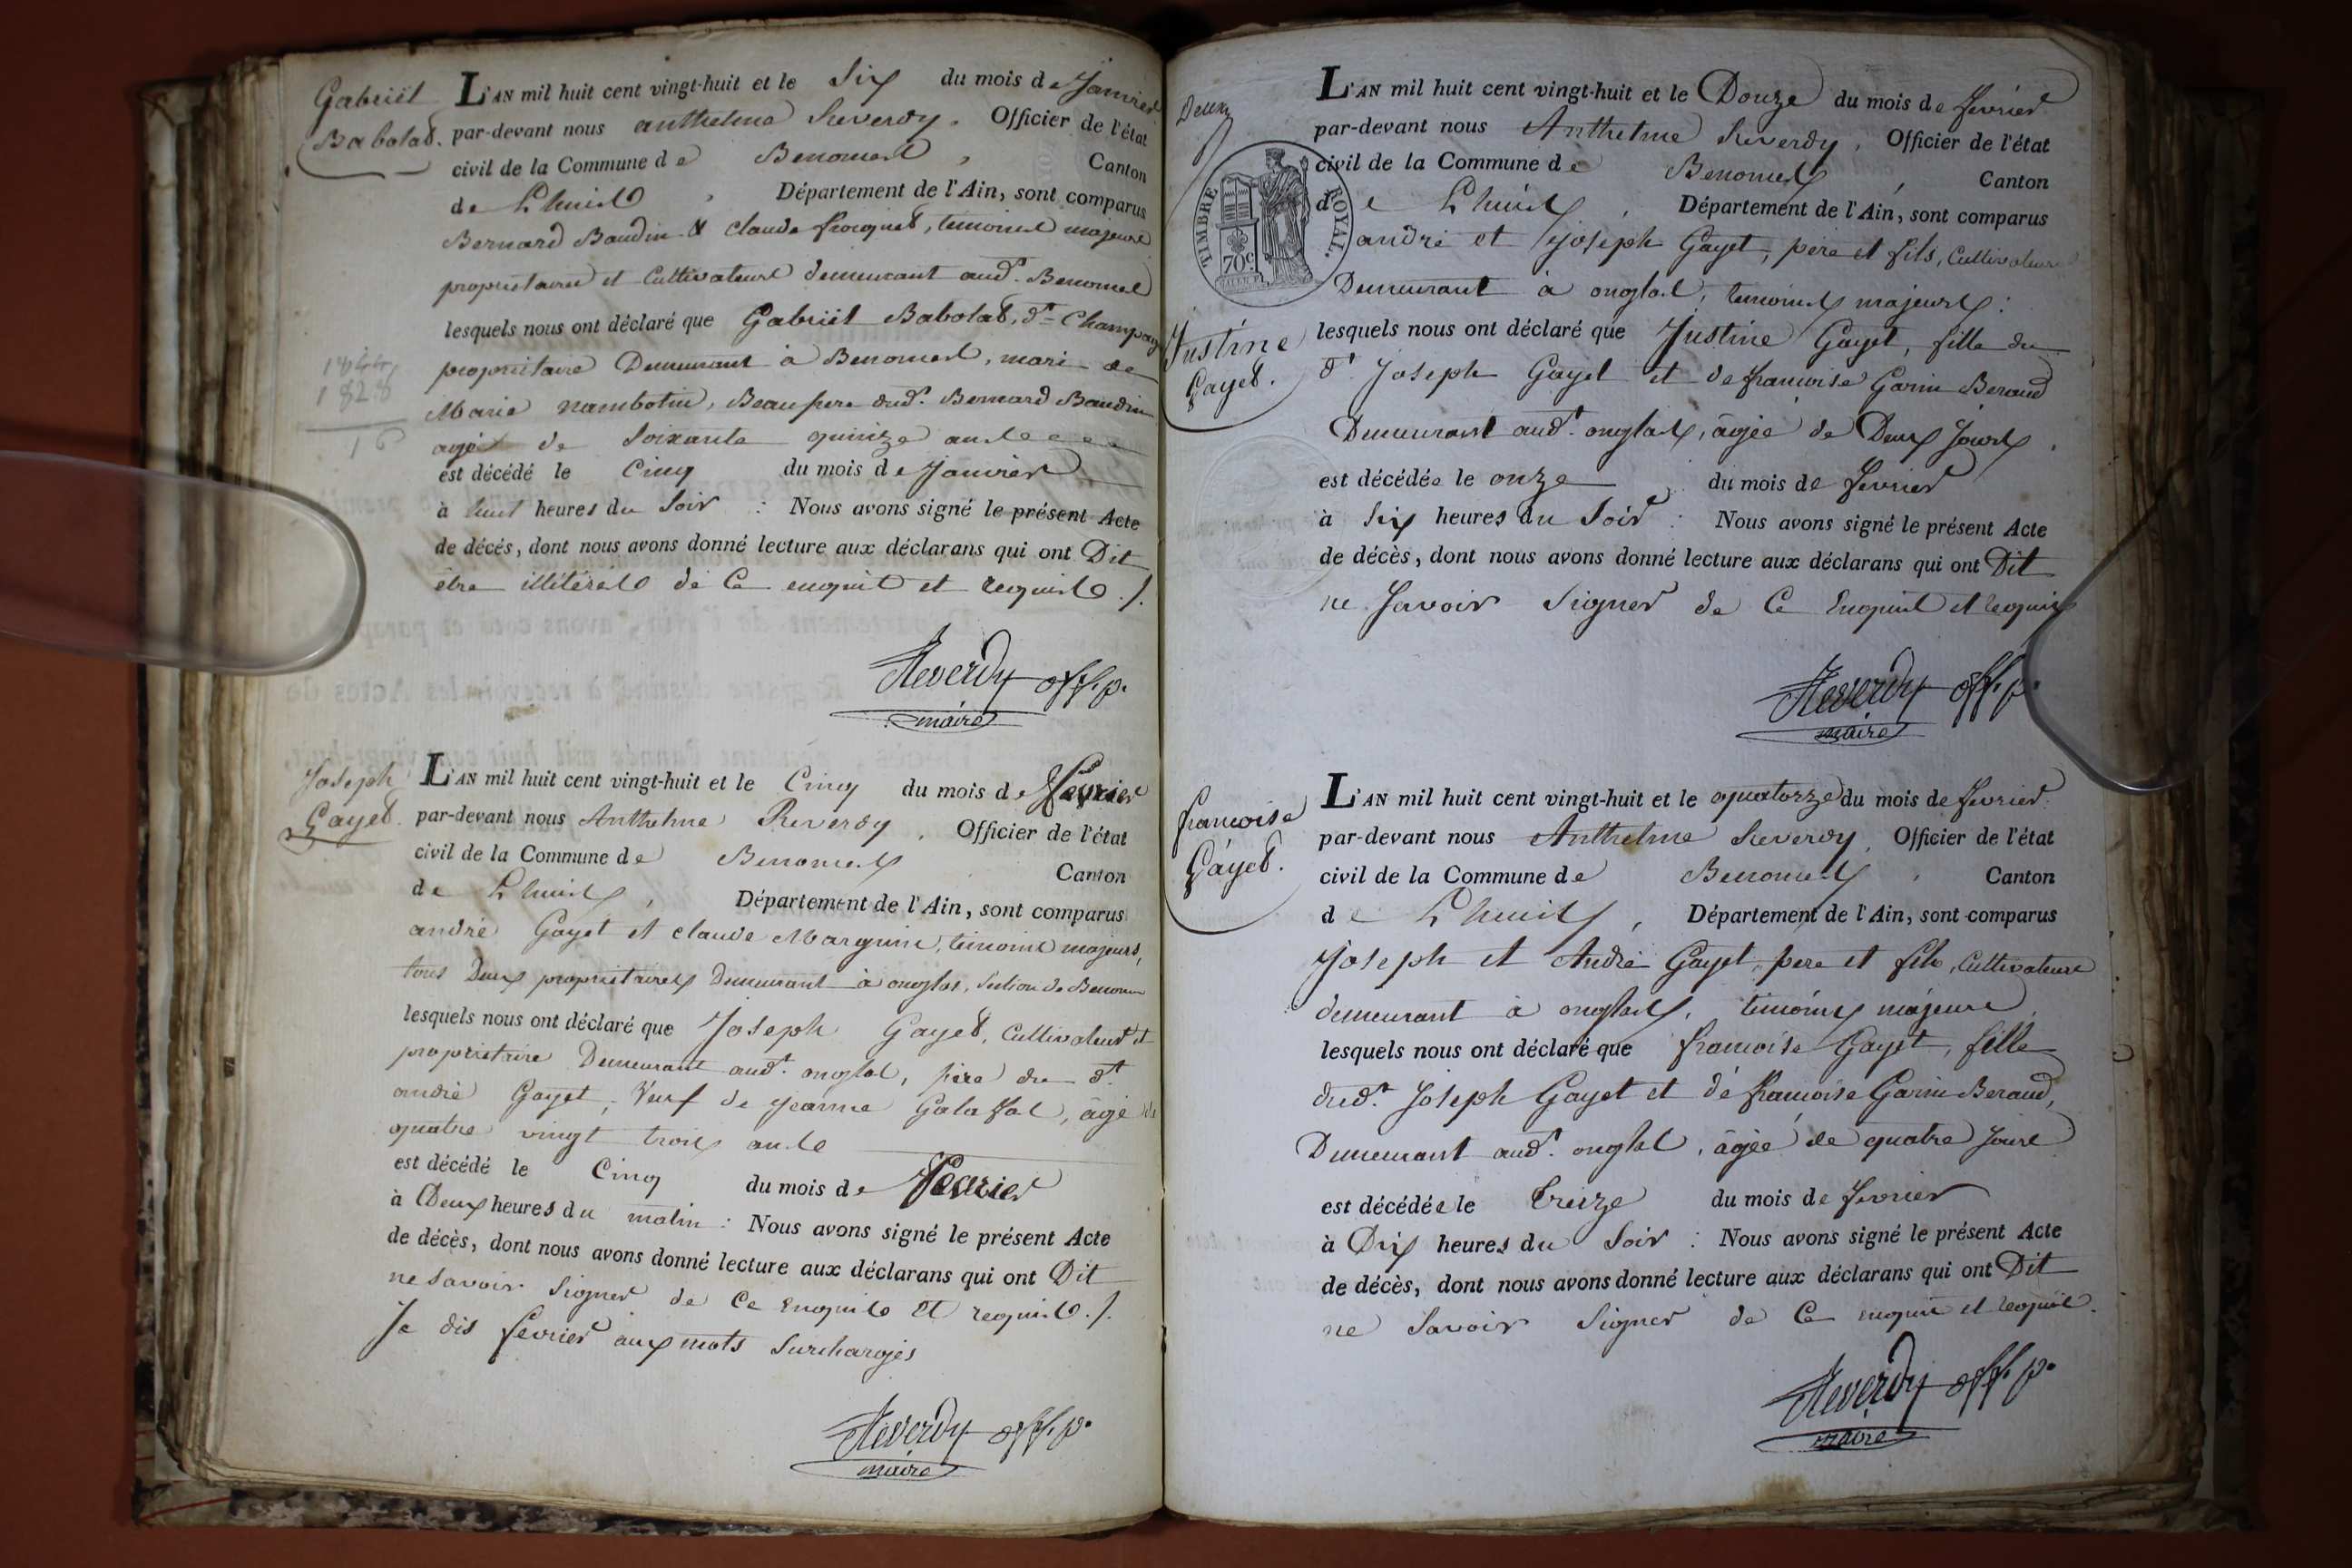 Gabriël
Babolat.
L'AN mil huit cent vingt-huit et le Six du mois de Janvier
par-devant nous anthelme Reverdy, Officier de l'état
civil de la Commune de Benonces, Canton
de Lhuis, Département de l'Ain, sont comparus
Bernard Baudin & Claude froquet, temoins majeurs
propriétaires et Cultivateurs demeurant aud.t Benonces
lesquels nous ont déclaré que Gabriël Babolat, d.t Champag
propriétaire Demeurant à Benonces, mari de
Marie nambotin, Beaupere dud.t Bernard Baudin
agé de Soixante quinze ans
est décédé le Cinq du mois de Janvier
à huit heures du Soir : Nous avons signé le présent Acte
de décés, dont nous avons donné lecture aux déclarans qui ont Dit
être illitérés de Ce enquis et requis ./.
1828
16
Reverdy off. p.
maire
Joseph
Gayet.
L'AN mil huit cent vingt-huit et le Cinq du mois de fevrier
par-devant nous Anthelme Reverdy, Officier de l'état
civil de la Commune de Benonces Canton
de Lhuis, Département de l'Ain, sont comparus
andré Gayet et claude Marguin, temoins majeurs,
tous Deux propriétaires Demeurant à onglas, Section de Benonces
lesquels nous ont déclaré que Joseph Gayet, Cultivateur et
propriétaire Demeurant aud.t onglas, père du d.t
andré Gayet, Veuf de jeanne Galaffat, âgé de
quatre vingt trois ans
est décédé le Cinq du mois de fevrier
à Deux heures du matin : Nous avons signé le présent Acte
de décès, dont nous avons donné lecture aux déclarans qui ont Dit
ne Savoir Signer de Ce enquis et requis ./.
Je dis fevrier aux mots Surchargés
Reverdy off. p.
maire
Deux
TIMBRE ROYAL.
70c
Justine
Gayet.
L'AN mil huit cent vingt-huit et le Douze du mois de fevrier
par-devant nous Anthelme Reverdy, Officier de l'état
civil de la Commune de Benonces, Canton
de Lhuis, Département de l'Ain, sont comparus
andré et joseph Gayet, père et fils, Cultivateurs
Demeurant à onglas, temoins majeurs :
lesquels nous ont déclaré que Justine Gayet, fille du
d.t Joseph Gayet et de francoise Garin Beraud
Demeurant aud.t onglas, âgée de Deux Jours,
est décédée le onze du mois de fevrier
à Six heures du Soir : Nous avons signé le présent Acte
de décès, dont nous avons donné lecture aux déclarans qui ont Dit
ne Savoir Signer de Ce Enquis et requis
Reverdy off. p.
maire
francoise
Gayet.
L'AN mil huit cent vingt-huit et le quatorze du mois de fevrier
par-devant nous Anthelme Reverdy, Officier de l'état
civil de la Commune de Benonces, Canton
de Lhuis, Département de l'Ain, sont comparus
Joseph et André Gayet, pere et fils, Cultivateurs
demeurant à onglas, temoins majeurs,
lesquels nous ont déclaré que francoise Gayet, fille
dud.t Joseph Gayet et de francoise Garin Beraud,
Demeurant aud.t onglas, âgée de quatre Jours
est décédée le treize du mois de fevrier
à Dix heures du Soir : Nous avons signé le présent Acte
de décès, dont nous avons donné lecture aux déclarans qui ont Dit
ne Savoir Signer de Ce enquis et requis.
Reverdy off. p.
maire